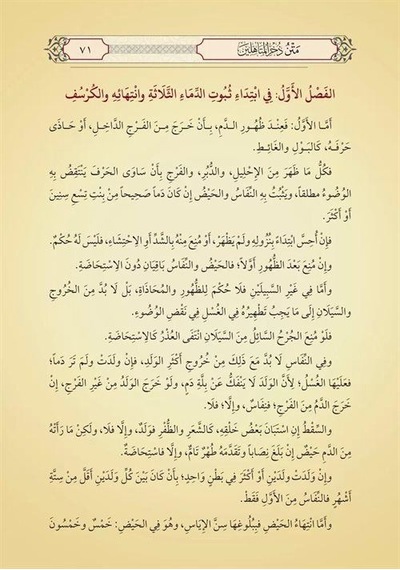 مَتْنُ ذُخْرِ المُتَأَهِّلِينَ
٧١
الفَصْلُ الأَوَّلُ: فِي ابْتِدَاءِ ثُبُوتِ الدِّمَاءِ الثَّلَاثَةِ وانْتِهَائِهِ والكُرْسُفِ
أَمَّا الأَوَّلُ: فَعِنْدَ ظُهُورِ الدَّمِ، بِأَنْ خَرَجَ مِنَ الفَرْجِ الدَّاخِلِ، أَوْ حَاذَى
حَرْفَهُ، كَالبَوْلِ وَالغَائِطِ.
فَكُلُّ مَا ظَهَرَ مِنَ الإِحْلِيلِ، وَالدُّبُرِ، وَالفَرْجِ بِأَنْ سَاوَى الحَرْفَ يَنْتَقِضُ بِهِ
الوُضُوءُ مطلقاً، ويَثْبُتُ بِهِ النِّفَاسُ وَالحَيْضُ إِنْ كَانَ دَماً صَحِيحاً مِنْ بِنْتِ تِسْعِ سِنِينَ
أَوْ أَكْثَرَ.
فَإِنْ أُحِسَّ ابْتِدَاءً بِنُزُولِهِ وَلَمْ يَظْهَرْ، أَوْ مُنِعَ مِنْهُ بِالشَّدِّ أَوِ الاِحْتِشَاءِ، فَلَيْسَ لَهُ حُكْمٌ.
وَإِنْ مُنِعَ بَعْدَ الظُّهُورِ أَوَّلاً؛ فالحَيْضُ والنِّفَاسُ بَاقِيَانِ دُونَ الاِسْتِحَاضَةِ.
وَأَمَّا فِي غَيْرِ السَّبِيلَيْنِ فَلَا حُكْمَ لِلظُّهُورِ وَالمُحَاذَاةِ، بَلْ لَا بُدَّ مِنَ الخُرُوجِ
وَالسَّيَلَانِ إِلَى مَا يَجِبُ تَطْهِيرُهُ فِي الغُسْلِ فِي نَقْضِ الوُضُوءِ.
فَلَوْ مُنِعَ الجُرْحُ السَّائِلُ مِنَ السَّيَلَانِ انْتَفَى العُذْرُ كَالاِسْتِحَاضَةِ.
وفِي النِّفَاسِ لَا بُدَّ مَعَ ذَلِكَ مِنْ خُرُوجِ أَكْثَرِ الوَلَدِ، فَإِنْ وَلَدَتْ وَلَمْ تَرَ دَماً؛
فعَلَيْهَا الغُسْلُ؛ لِأَنَّ الوَلَدَ لَا يَنْفَكُّ عَنْ بِلَّةِ دَمٍ، ولَوْ خَرَجَ الوَلَدُ مِنْ غَيْرِ الفَرْجِ، إِنْ
خَرَجَ الدَّمُ مِنَ الفَرْجِ؛ فنِفَاسٌ، وَإِلَّا؛ فلَا.
والسِّقْطُ إِنِ اسْتَبَانَ بَعْضُ خَلْقِهِ، كَالشَّعْرِ والظُّفْرِ فوَلَدٌ، وإِلَّا فلَا، ولَكِنْ مَا رَأَتْهُ
مِنَ الدَّمِ حَيْضٌ إِنْ بَلَغَ نِصَاباً وتَقَدَّمَهُ طُهْرٌ تَامٌّ، وإِلَّا فاسْتِحَاضَةٌ.
وَإِنْ وَلَدَتْ وَلَدَيْنِ أَوْ أَكْثَرَ فِي بَطْنٍ وَاحِدٍ؛ بِأَنْ كَانَ بَيْنَ كُلِّ وَلَدَيْنِ أَقَلُّ مِنْ سِتَّةِ
أَشْهُرٍ فالنِّفَاسُ مِنَ الأَوَّلِ فَقَطْ.
وَأَمَّا انْتِهَاءُ الحَيْضِ فبِبُلُوغِهَا سِنَّ الإِيَاسِ، وهُوَ فِي الحَيْضِ: خَمْسٌ وخَمْسُونَ